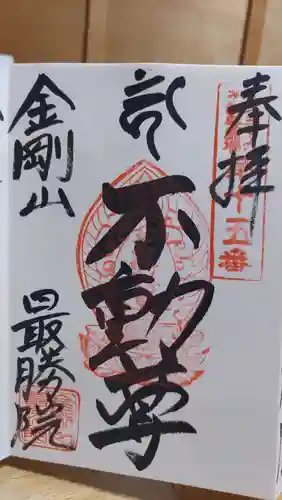 奉拝
十五番
不動尊
金剛山
最勝院